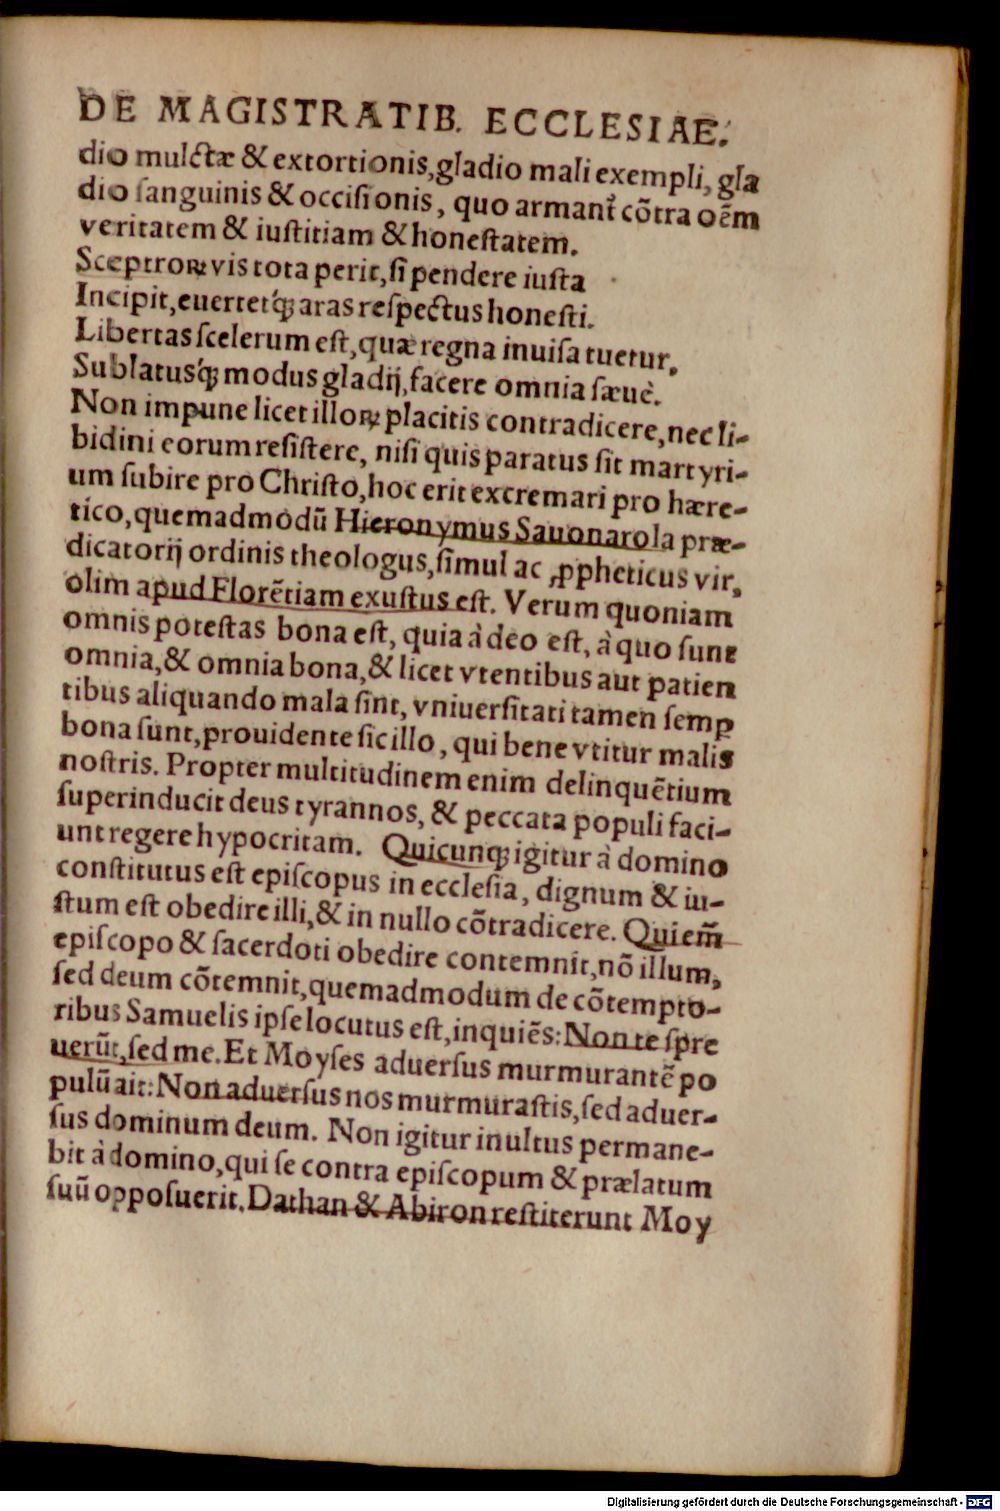 DE MAGISTRATIB. ECCLESIAE.
dio mulctæ & extortionis, gladio mali exempli, gla
dio ſanguinis & occiſionis, quo armant᷑ cõtra oẽm
veritatem & iuſtitiam & honeſtatem.
Sceptroꝝ vis tota perit, ſi pendere iuſta
Incipit, euertetq́ꝫ aras reſpectus honeſti.
Libertas ſcelerum eſt, quæ regna inuiſa tuetur,
Sublatusq́ꝫ modus gladij, facere omnia ſæuè.
Non impune licet illoꝝ placitis contradicere, nec li-
bidini eorum reſiſtere, niſi quis paratus ſit martyri-
um ſubire pro Chriſto, hoc erit excremari pro hære-
tico, quemadmodũ Hieronymus Sauonarola præ-
dicatorij ordinis theologus, ſimul ac ꝓpheticus vir,
olim apud Florẽtiam exuſtus eſt. Verum quoniam
omnis poteſtas bona eſt, quia à deo eſt, à quo ſunt
omnia, & omnia bona, & licet vtentibus aut patien
tibus aliquando mala ſint, vniuerſitati tamen ſemꝑ
bona ſunt, prouidente ſic illo, qui bene vtitur malis
noſtris. Propter multitudinem enim delinquẽtium
ſuperinducit deus tyrannos, & peccata populi faci-
unt regere hypocritam. Quicunqꝫ igitur à domino
conſtitutus eſt epiſcopus in eccleſia, dignum & iu-
ſtum eſt obedire illi, & in nullo cõtradicere. Qui em̃
epiſcopo & ſacerdoti obedire contemnit, nõ illum,
ſed deum cõtemnit, quemadmodum de cõtempto-
ribus Samuelis ipſe locutus eſt, inquiẽs: Non te ſpre
uerũt, ſed me. Et Moyſes aduerſus murmurantẽ po
pulũ ait: Non aduerſus nos murmuraſtis, ſed aduer-
ſus dominum deum. Non igitur inultus permane-
bit à domino, qui ſe contra epiſcopum & prælatum
ſuũ oppoſuerit. Dathan & Abiron reſtiterunt Moy
Digitalisierung gefördert durch die Deutsche Forschungsgemeinschaft - DFG